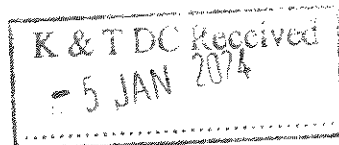 K & T DC Received
- 5 JAN 2074